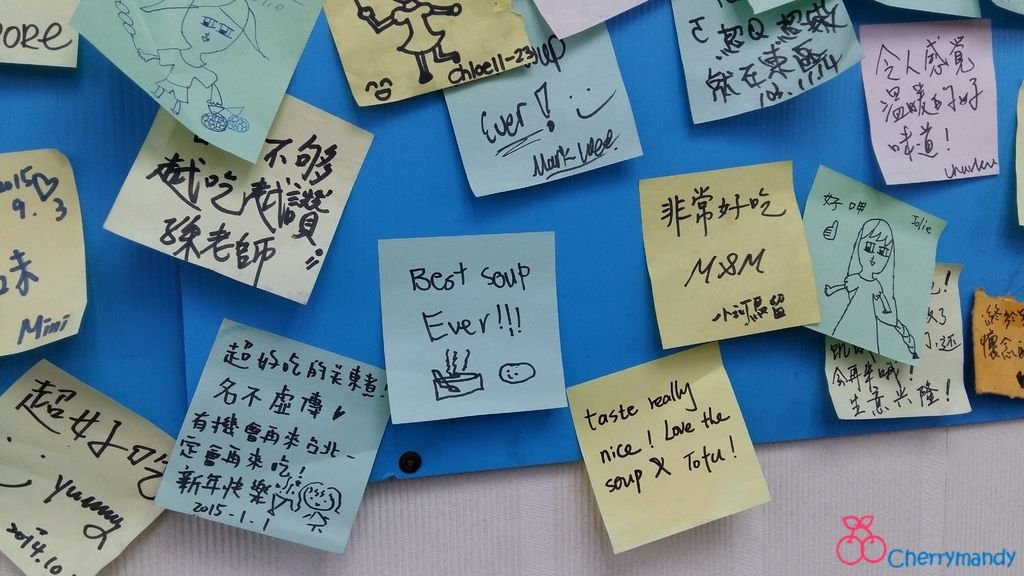 PORE
Jolie
Chloe 11-23
Ever!
Mark Wee.
就在東
令人感覺
溫暖的好
味道!
不夠
越吃越讚
孫老師
2015
9. 3
味
Mimi
Best soup
Ever!!!
非常好吃
M&M
好呷
Jolie
會再來哦!
生意兴隆!
超好吃的关東煮!
名不虛傳
有機會再來台北一
定會再來吃!
新年快樂
2015-1-1
taste really
nice! Love the
soup X Tofu!
超好吃
yummy
2014.10.
Cherrymandy